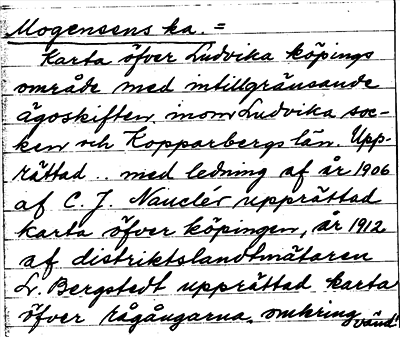 Mogensens ka. =
Karta öfver Ludvika köpings
område med intillgränsande
ägoskiften inom Ludvika soc-
ken och Kopparbergs län. Upp-
rättad .. med ledning af år 1906
af C. J. Nauclér upprättad
karta öfver köpingen, år 1912
af distriktslandtmätaren
L. Bergstedt upprättad karta
öfver rågångarna omkring
vänd!